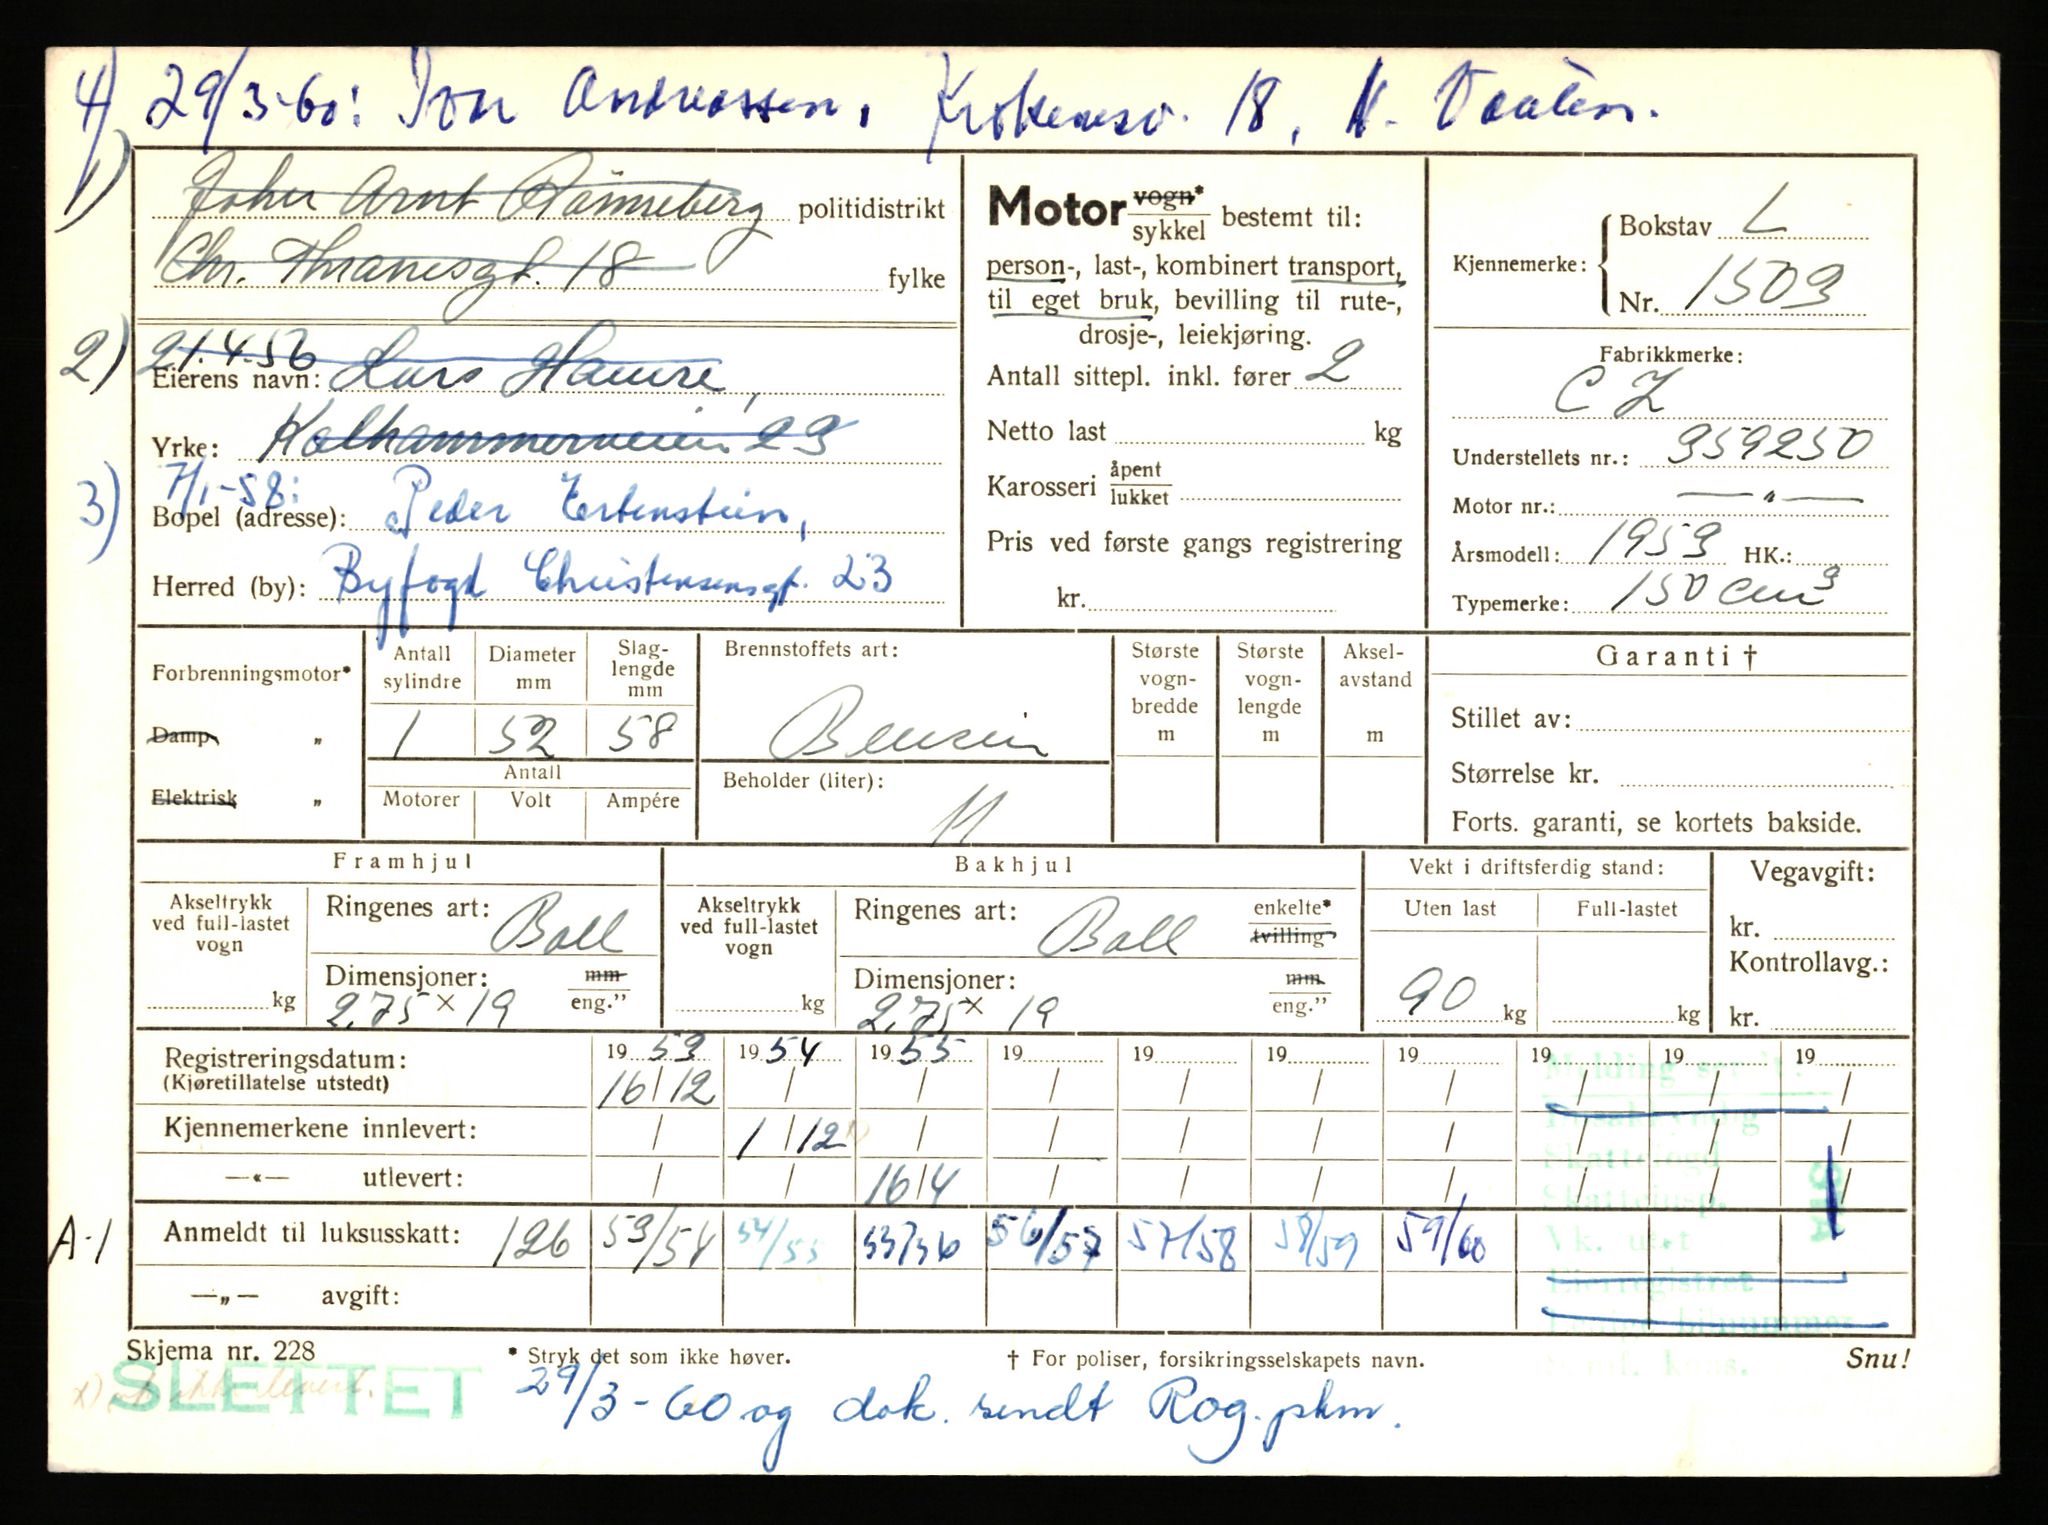 4) 29/3-60: Ivar Andreassen, 18,
1) Arnt Rønneberg politidistrikt
Chr. Thranesgt. 18 fylke
2) 21.4.56
Eierens navn: Lars Hamre,
Yrke: Kalhammerveien 23
3) 7/1-58:
Bopel (adresse): Peder Ertenstein,
Herred (by): Byfogd Christensensgt. 23
Motor vogn* / sykkel bestemt til:
person-, last-, kombinert transport,
til eget bruk, bevilling til rute-,
drosje-, leiekjøring.
Antall sittepl. inkl. fører 2
Netto last kg
Karosseri åpent / lukket
Pris ved første gangs registrering
kr.
Kjennemerke: { Bokstav L
Nr. 1503
Fabrikkmerke:
CZ
Understellets nr.: 359250
Motor nr.: — " —
Årsmodell: 1953 HK.:
Typemerke: 150 cm³
Forbrenningsmotor*
Damp- „
Elektrisk „
Antall sylindre 1
Diameter mm 52
Slaglengde mm 58
Antall
Motorer Volt Ampére
Brennstoffets art:
Bensin
Beholder (liter):
11
Største vogn-bredde m
Største vogn-lengde m
Aksel-avstand m
Garanti †
Stillet av:
Størrelse kr.
Forts. garanti, se kortets bakside.
Framhjul
Akseltrykk ved full-lastet vogn kg
Ringenes art: Ball
Dimensjoner: mm / eng."
2,75 × 19
Bakhjul
Akseltrykk ved full-lastet vogn kg
Ringenes art: Ball enkelte* / tvilling
Dimensjoner: mm / eng."
2,75 × 19
Vekt i driftsferdig stand:
Uten last Full-lastet
90 kg kg
Vegavgift:
kr.
Kontrollavg.:
kr.
Registreringsdatum: 1953 1954 1955 19 19 19 19 19 19 19
(Kjøretillatelse utstedt) 16/12 / / / / / / / / /
Kjennemerkene innlevert: / 1/12 / / / / / / / /
—«— utlevert: / / 16/4 / / / / / / /
A-1 Anmeldt til luksusskatt: 126 53/54 54/55 55/56 56/57 57/58 58/59 59/60
—„— avgift:
Melding
Skattefogd
Skatteinsp.
Vk. utst
Eierregistret
Skjema nr. 228 * Stryk det som ikke høver. † For poliser, forsikringsselskapets navn. Snu!
SLETTET
29/3-60 og dok. sendt Rog. pkm.